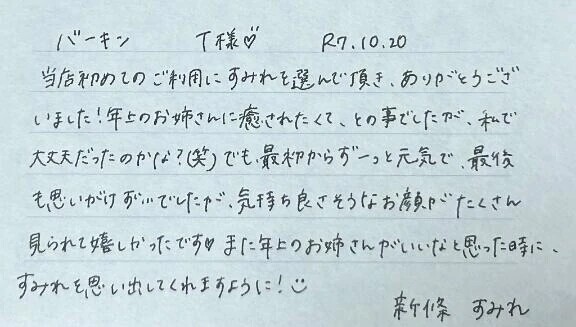 バーキン T様♡ R7.10.20
当店初めてのご利用にすみれを選んで頂き、ありがとうござ
いました!年上のお姉さんに癒されたくて、との事でしたが、私で
大丈夫だったのかな?(笑)でも、最初からずーっと元気で、最後
も思いがけずい!でしたが、気持ち良さそうなお顔がたくさん
見られて嬉しかったです♡また年上のお姉さんがいいなと思った時に、
すみれを思い出してくれますように!☺
新條 すみれ